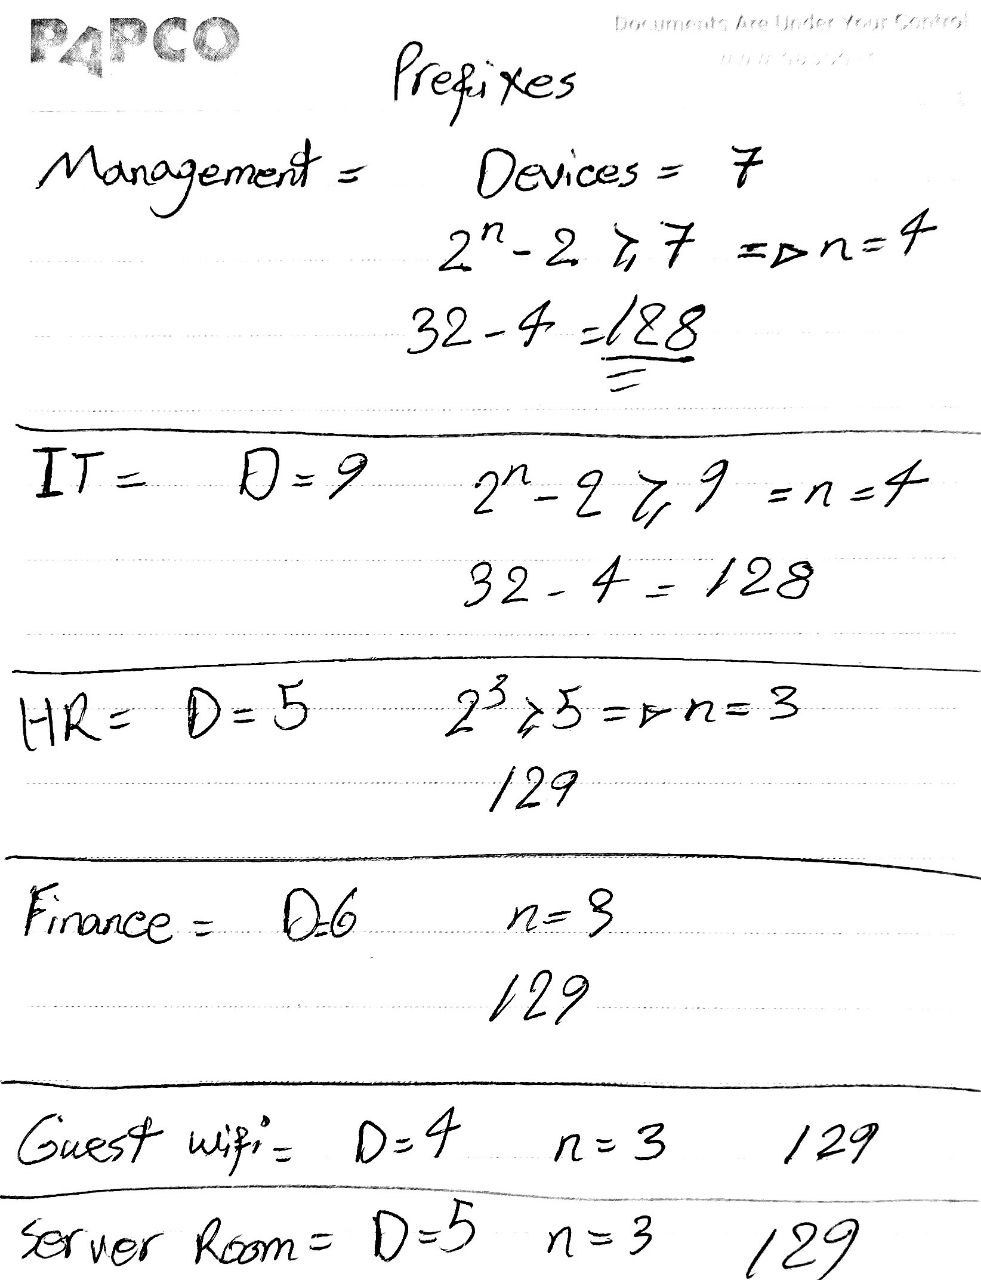 PAPCO
Documents Are Under Your Control
Prefixes
Management = Devices = 7
2ⁿ - 2 ⩾ 7 => n = 4
32 - 4 = /28
IT = D = 9 2ⁿ - 2 ⩾ 9 = n = 4
32 - 4 = /28
HR = D = 5 2³ ⩾ 5 => n = 3
/29
Finance = D=6 n = 3
/29
Guest wifi = D = 4 n = 3 /29
Server Room = D = 5 n = 3 /29